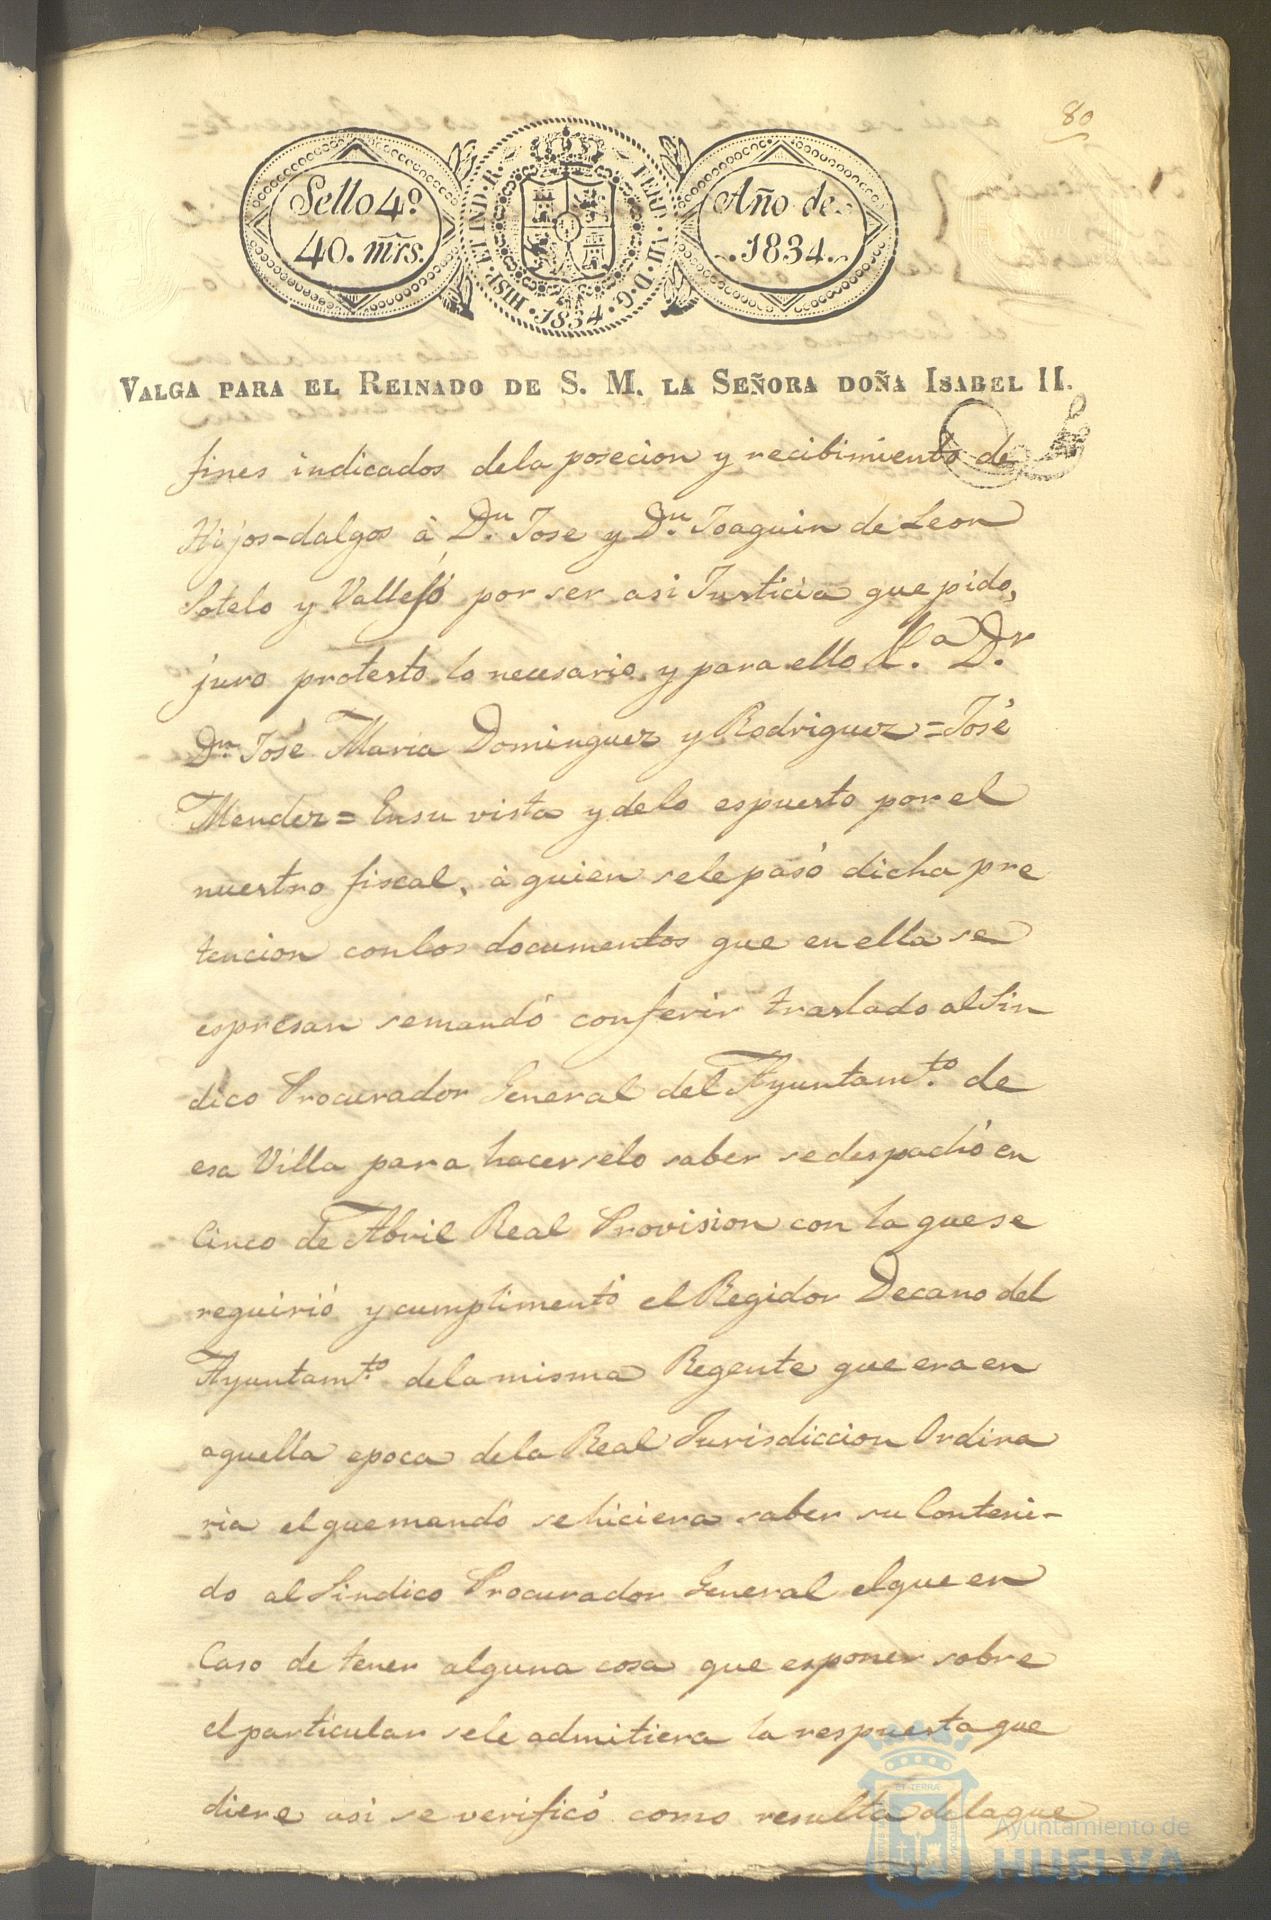 80
Sello 4º
40. mrs.
HISP. ET IND. R. FERD. VII. D. G. 1834
Año de
1834.
VALGA PARA EL REINADO DE S. M. LA SEÑORA DOÑA ISABEL II.
fines indicados dela posecion y recibimiento de
Hijos-dalgos à Dn. Jose y Dn. Joaquin de Leon
Sotelo y Vallejo por ser asi Justicia que pido,
juro protesto lo necesario, y para ello
Dn. José Maria Dominguez y Rodriguez = José
Mendez = Ensu vista y delo espuesto por el
nuestro fiscal, à quien sele pasó dicha pre
tencion conlos documentos que en ella se
espresan semandó conferir traslado al Sin
dico Procurador General del Ayuntamto. de
esa Villa para hacerselo saber sedespachó en
Cinco de Abril Real Provision con la quese
requirió y cumplimentó el Regidor Decano del
Ayuntamto. dela misma Regente que era en
aquella epoca dela Real Jurisdiccion Ordina
ria elquemandó sehiciera saber su Conteni-
do al Sindico Procurador General elque en
Caso de tener alguna cosa que esponer sobre
el particular sele admitiera la respuesta que
diere asi se verificó como resulta delaque
Ayuntamiento de
HUELVA